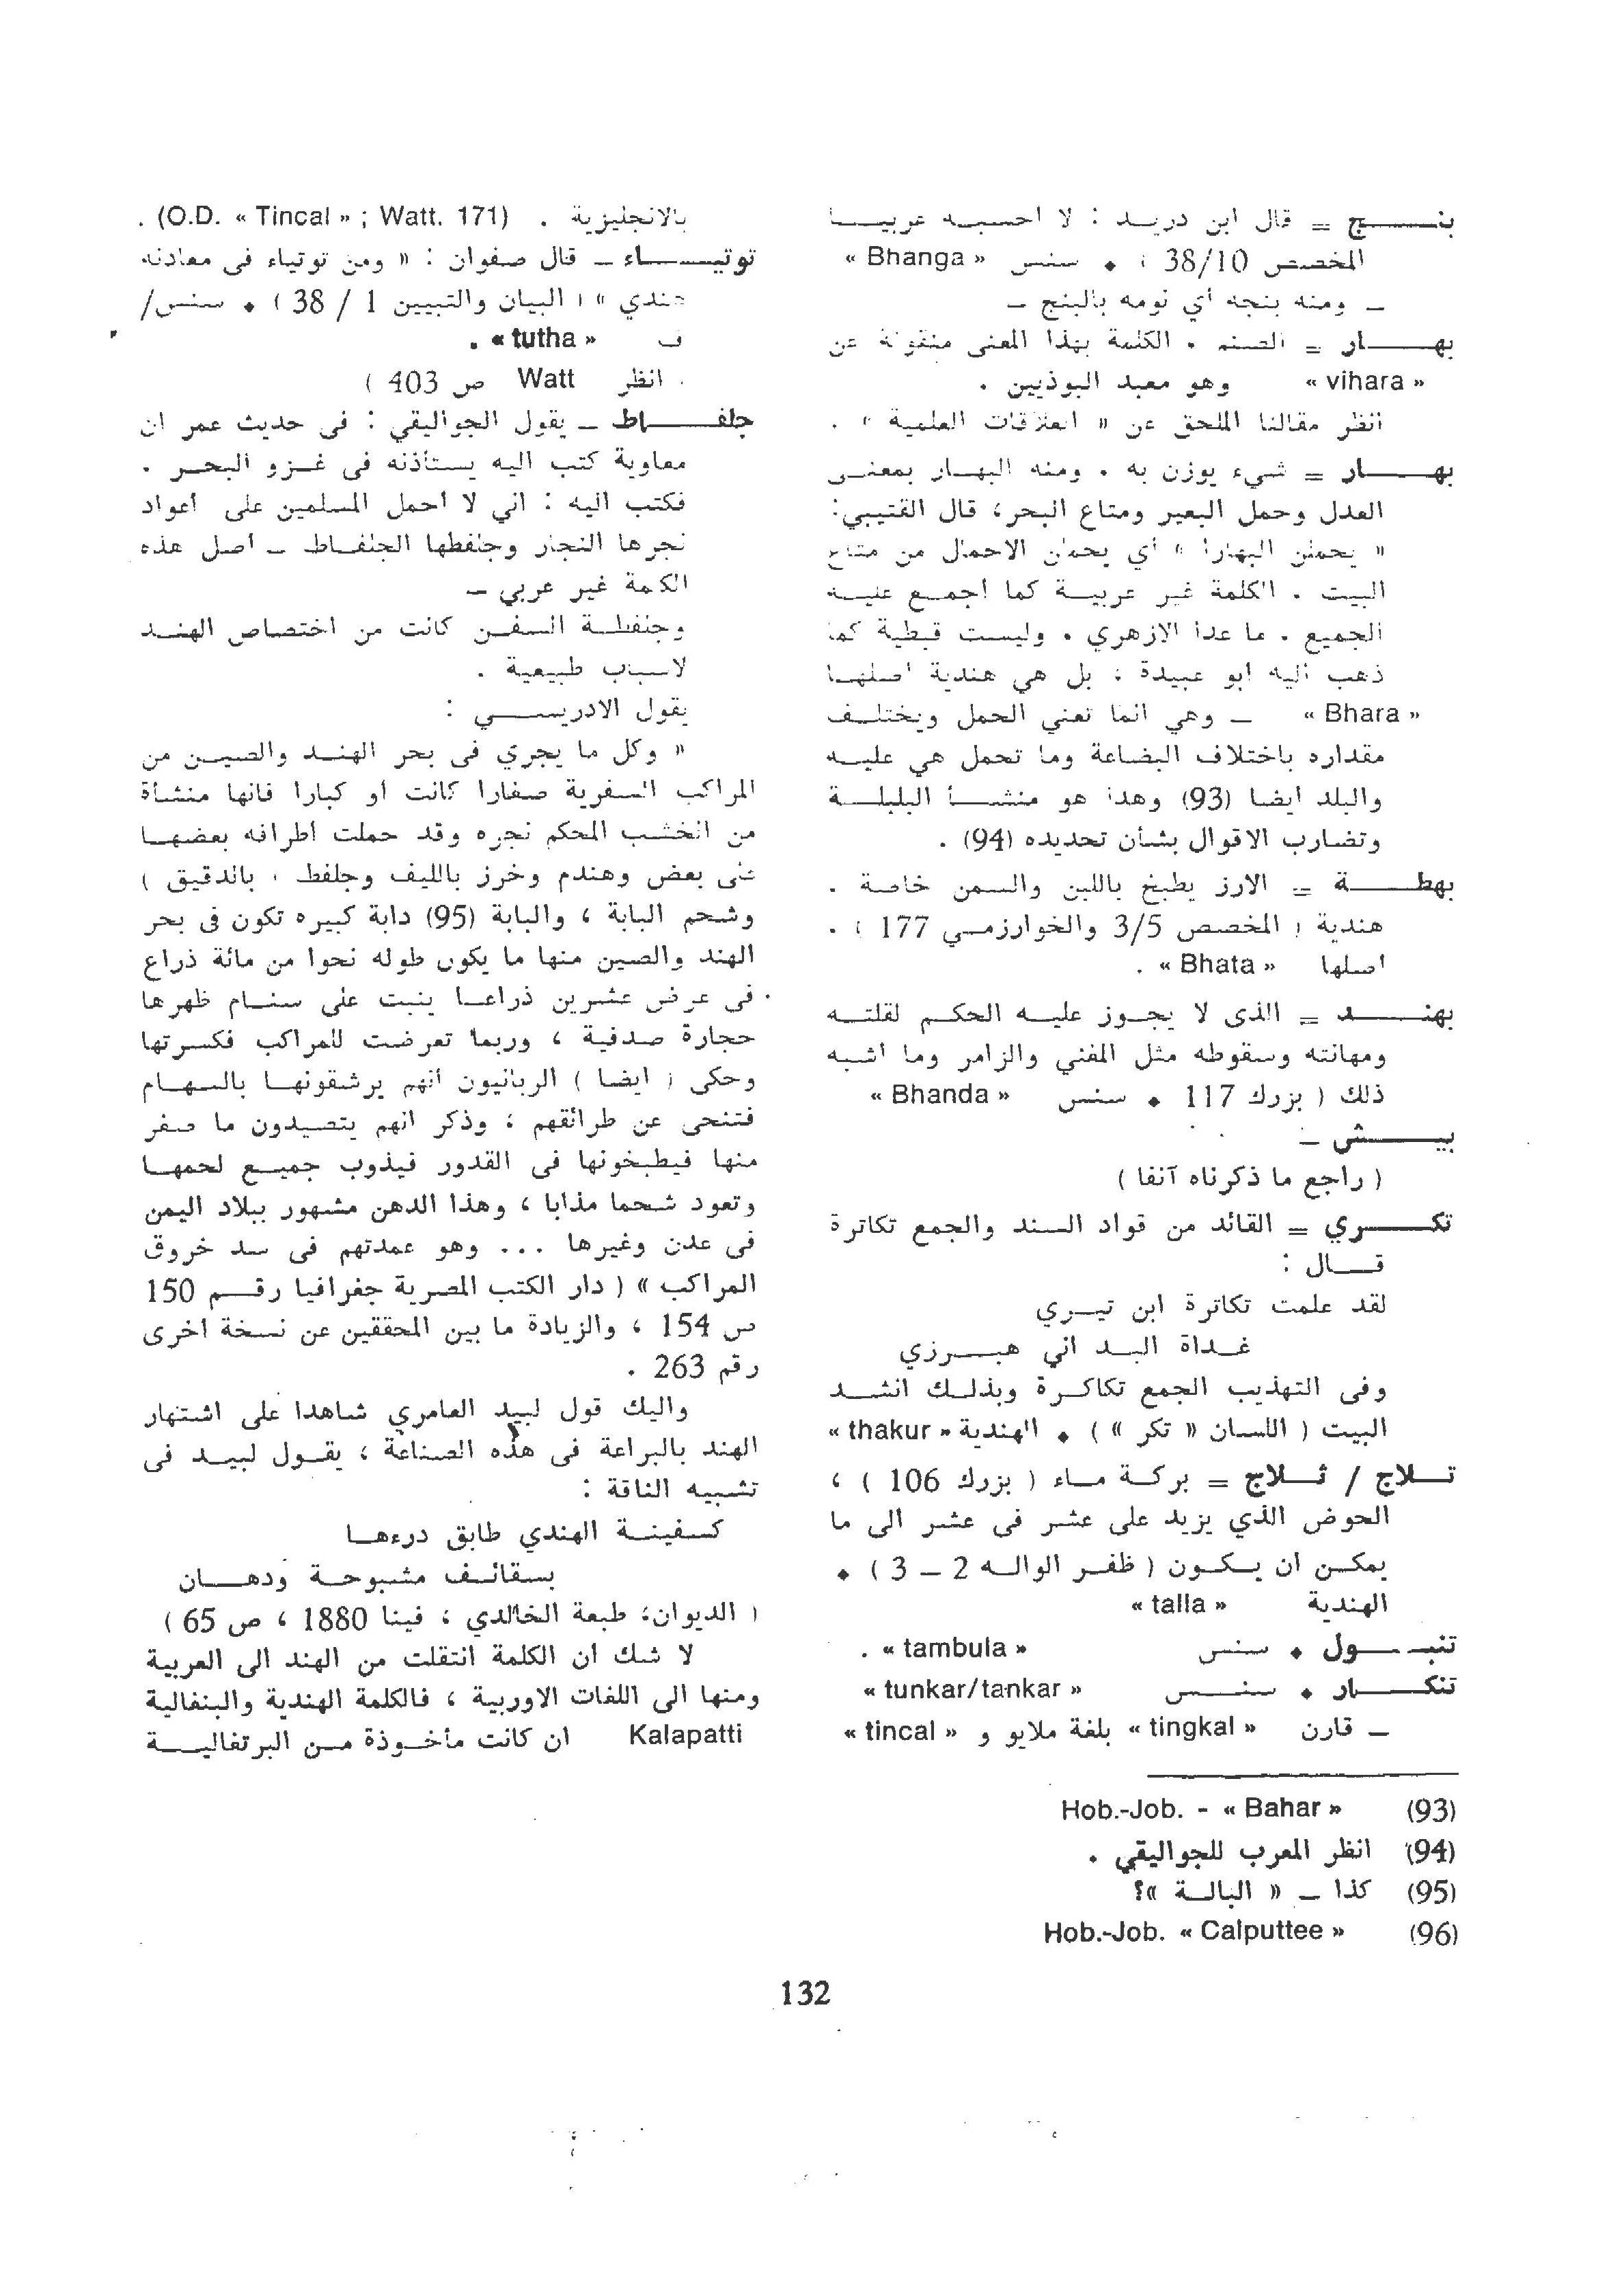 بنج = قال ابن دريد : لا احسبه عربيا
المخصص 38/10 ) ♦ سنس « Bhanga »
– ومنه بنجه أي نومه بالبنج –
بهار = الصنم . الكلمة بهذا المعنى منقولة عن
« vihara » وهو معبد البوذيين .
انظر مقالنا الملحق عن « العلاقات العلمية » .
بهار = شيء يوزن به . ومنه البهار بمعنى
العدل وحمل البعير ومتاع البحر، قال القتيبي:
« يحملن البهارا » أي يحملن الاحمال من متاع
البيت . الكلمة غير عربية كما اجمع عليه
الجميع . ما عدا الازهري . وليست قبطية كما
ذهب اليه ابو عبيدة ؛ بل هي هندية اصلها
« Bhara » – وهي انما تعني الحمل ويختلف
مقداره باختلاف البضاعة وما تحمل هي عليه
والبلد ايضا (93) وهذا هو منشأ البلبلة
وتضارب الاقوال بشأن تحديده (94) .
بهطة = الارز يطبخ باللبن والسمن خاصة .
هندية ( المخصص 3/5 والخوارزمي 177 ) .
اصلها « Bhata » .
بهند = الذى لا يجوز عليه الحكم لقلته
ومهانته وسقوطه مثل المغني والزامر وما اشبه
ذلك ( بزرك 117 ♦ سنس « Bhanda »
بيش –
( راجع ما ذكرناه آنفا )
تكري = القائد من قواد السند والجمع تكاترة
قال :
لقد علمت تكاترة ابن تيري
غداة البد اني هبرزي
وفى التهذيب الجمع تكاكرة وبذلك انشد
البيت ( اللسان « تكر » ) ♦ الهندية « thakur »
تلاج / ثلاج = بركة ماء ( بزرك 106 ) ،
الحوض الذي يزيد على عشر فى عشر الى ما
يمكن ان يكون ( ظفر الواله 2 – 3 ) ♦
الهندية « talla »
تنبول ♦ سنس « tambula » .
تنكار ♦ سنس « tunkar/tankar »
– قارن « tingkal » بلغة ملايو و « tincal »
بالانجليزية . (O.D. « Tincal » ; Watt. 171) .
توتياء – قال صفوان : « ومن توتياء فى معادنه
هندي » ( البيان والتبيين 1 / 38 ) ♦ سنس/
ف « tutha » .
انظر Watt ص 403 )
جلفاط – يقول الجواليقي : فى حديث عمر ان
معاوية كتب اليه يستأذنه فى غزو البحر .
فكتب اليه : اني لا احمل المسلمين على أعواد
نجرها النجار وجلفطها الجلفاط – اصل هذه
الكلمة غير عربي –
وجلفطة السفن كانت من اختصاص الهند
لاسباب طبيعية .
يقول الادريسي :
« وكل ما يجري فى بحر الهند والصين من
المراكب السفرية صغارا كانت او كبارا فانها منشأة
من الخشب المحكم نجره وقد حملت اطرافه بعضها
على بعض وهندم وخرز بالليف وجلفط ، بالدقيق )
وشحم البابة ، والبابة (95) دابة كبيره تكون فى بحر
الهند والصين منها ما يكون طوله نحوا من مائة ذراع
فى عرض عشرين ذراعا ينبت على سنام ظهرها
حجارة صدفية ، وربما تعرضت للمراكب فكسرتها
وحكى ( ايضا ) الربانيون انهم يرشقونها بالسهام
فتنحى عن طرائقهم ؛ وذكر انهم يتصيدون ما صغر
منها فيطبخونها فى القدور فيذوب جميع لحمها
وتعود شحما مذابا ، وهذا الدهن مشهور ببلاد اليمن
فى عدن وغيرها ... وهو عمدتهم فى سد خروق
المراكب » ( دار الكتب المصرية جغرافيا رقم 150
ص 154 ، والزيادة ما بين المحققين عن نسخة اخرى
رقم 263 .
واليك قول لبيد العامري شاهدا على اشتهار
الهند بالبراعة فى هذه الصناعة ، يقول لبيد فى
تشبيه الناقة :
كسفينة الهندي طابق درءها
بسقائف مشبوحة ودهان
( الديوان؛ طبعة الخالدي ، فينا 1880 ، ص 65 )
لا شك ان الكلمة انتقلت من الهند الى العربية
ومنها الى اللغات الاوربية ، فالكلمة الهندية والبنغالية
Kalapatti ان كانت مأخوذة من البرتغالية
(93) Hob.-Job. - « Bahar »
(94) انظر المعرب للجواليقي .
(95) كذا – « البالة »؟
(96) Hob.-Job. « Calputtee »
132